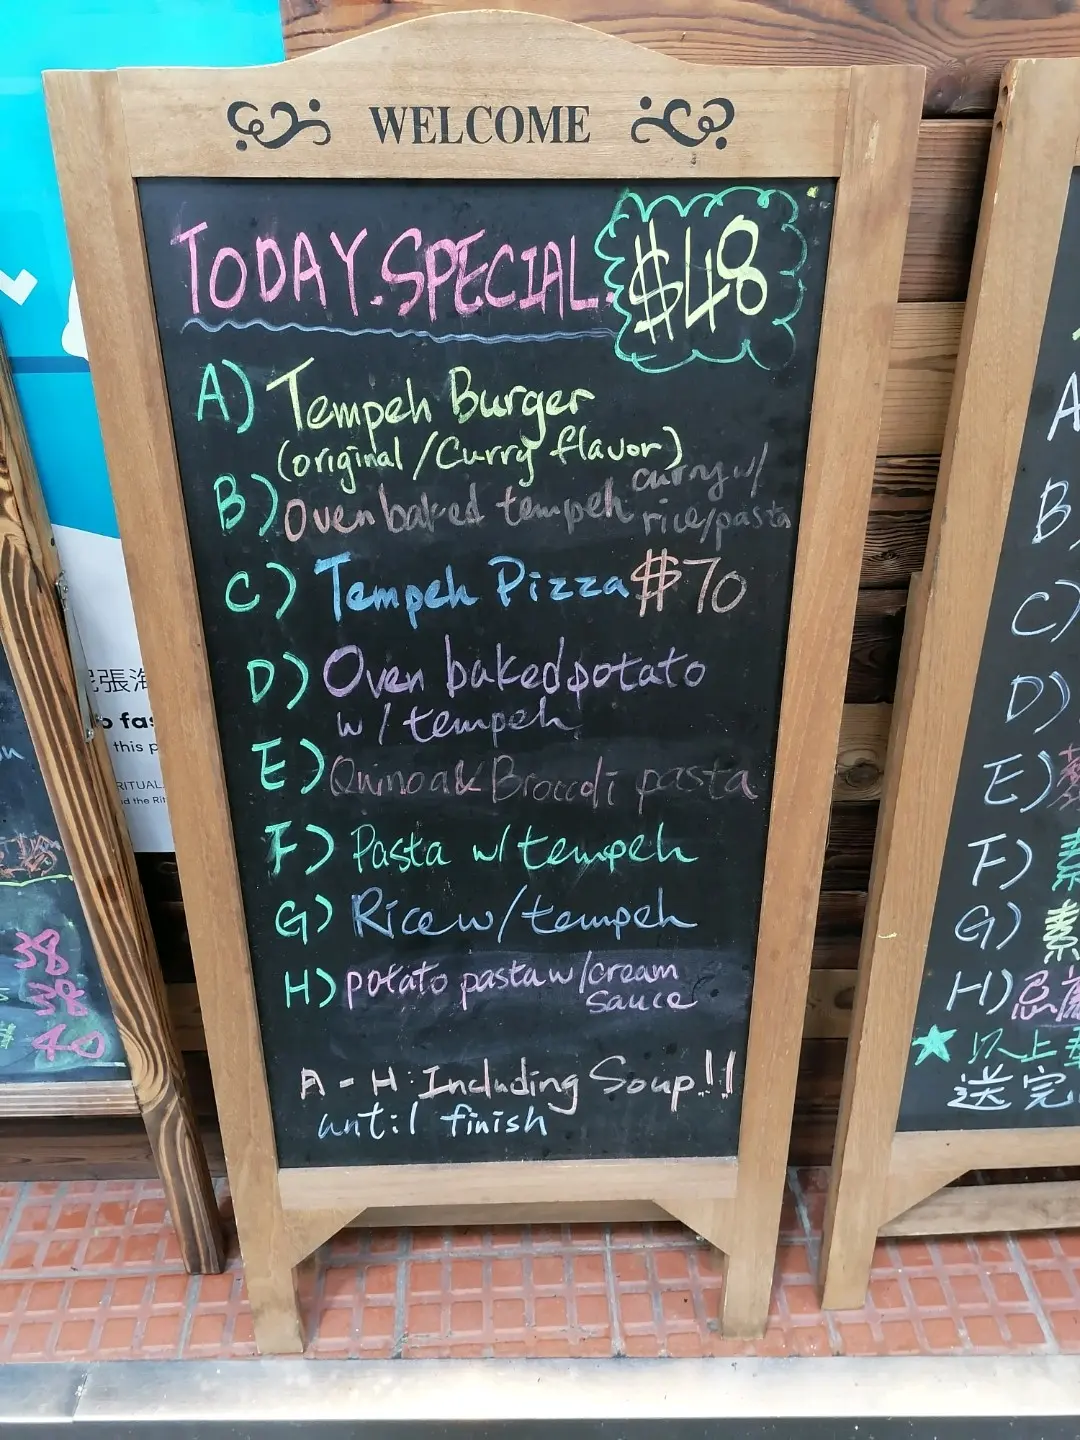 WELCOME
TODAY.SPECIAL. $48
A) Tempeh Burger
(original/Curry flavor)
B) Oven baked tempeh curry w/
rice/pasta
C) Tempeh Pizza $70
D) Oven baked potato
w/ tempeh
E) Quinoa & Broccoli pasta
F) Pasta w/ tempeh
G) Rice w/ tempeh
H) potato pasta w/ cream
sauce
A - H: Including Soup!!
until finish
張
this p
RITUAL
d the Rit
38
38
40
A
B)
C)
D)
E)
F) 素
G) 素
H) 忌廉
★ 以上
送完